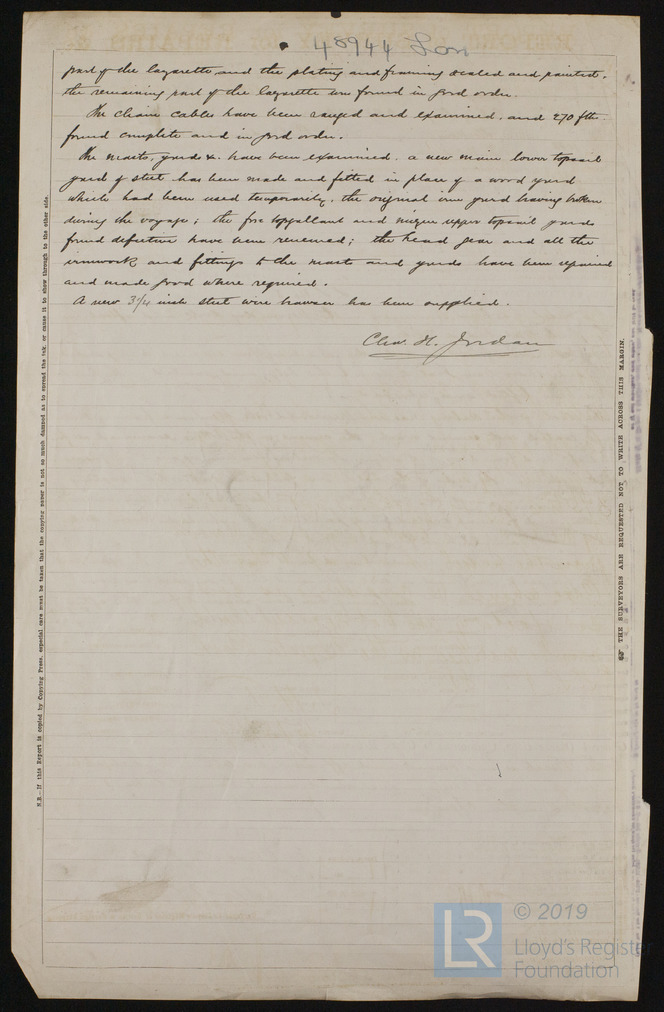 48944 Lon
part of the lazarette and the plating and framing scaled and painted,
the remaining part of the lazarette was found in good order.
The chain cables have been ranged and examined, and 270 fths.
found complete and in good order.
The masts, yards &c. have been examined. a new main lower topsail
yard of steel has been made and fitted in place of a wood yard
which had been used temporarily, the original iron yard having broken
during the voyage; the fore topgallant and mizen upper topsail yards
found defective have been renewed; the head gear and all the
ironwork and fittings to the masts and yards have been repaired
and made good where required.
A new 3 1/4 inch steel wire hawser has been supplied.
Chas. H. Jordan
N.B.—If this Report is copied by Copying Press, especial care must be taken that the copying paper is not so much damped as to spread the ink, or cause it to show through to the other side.
THE SURVEYORS ARE REQUESTED NOT TO WRITE ACROSS THIS MARGIN.
LR
© 2019
Lloyd's Register
Foundation